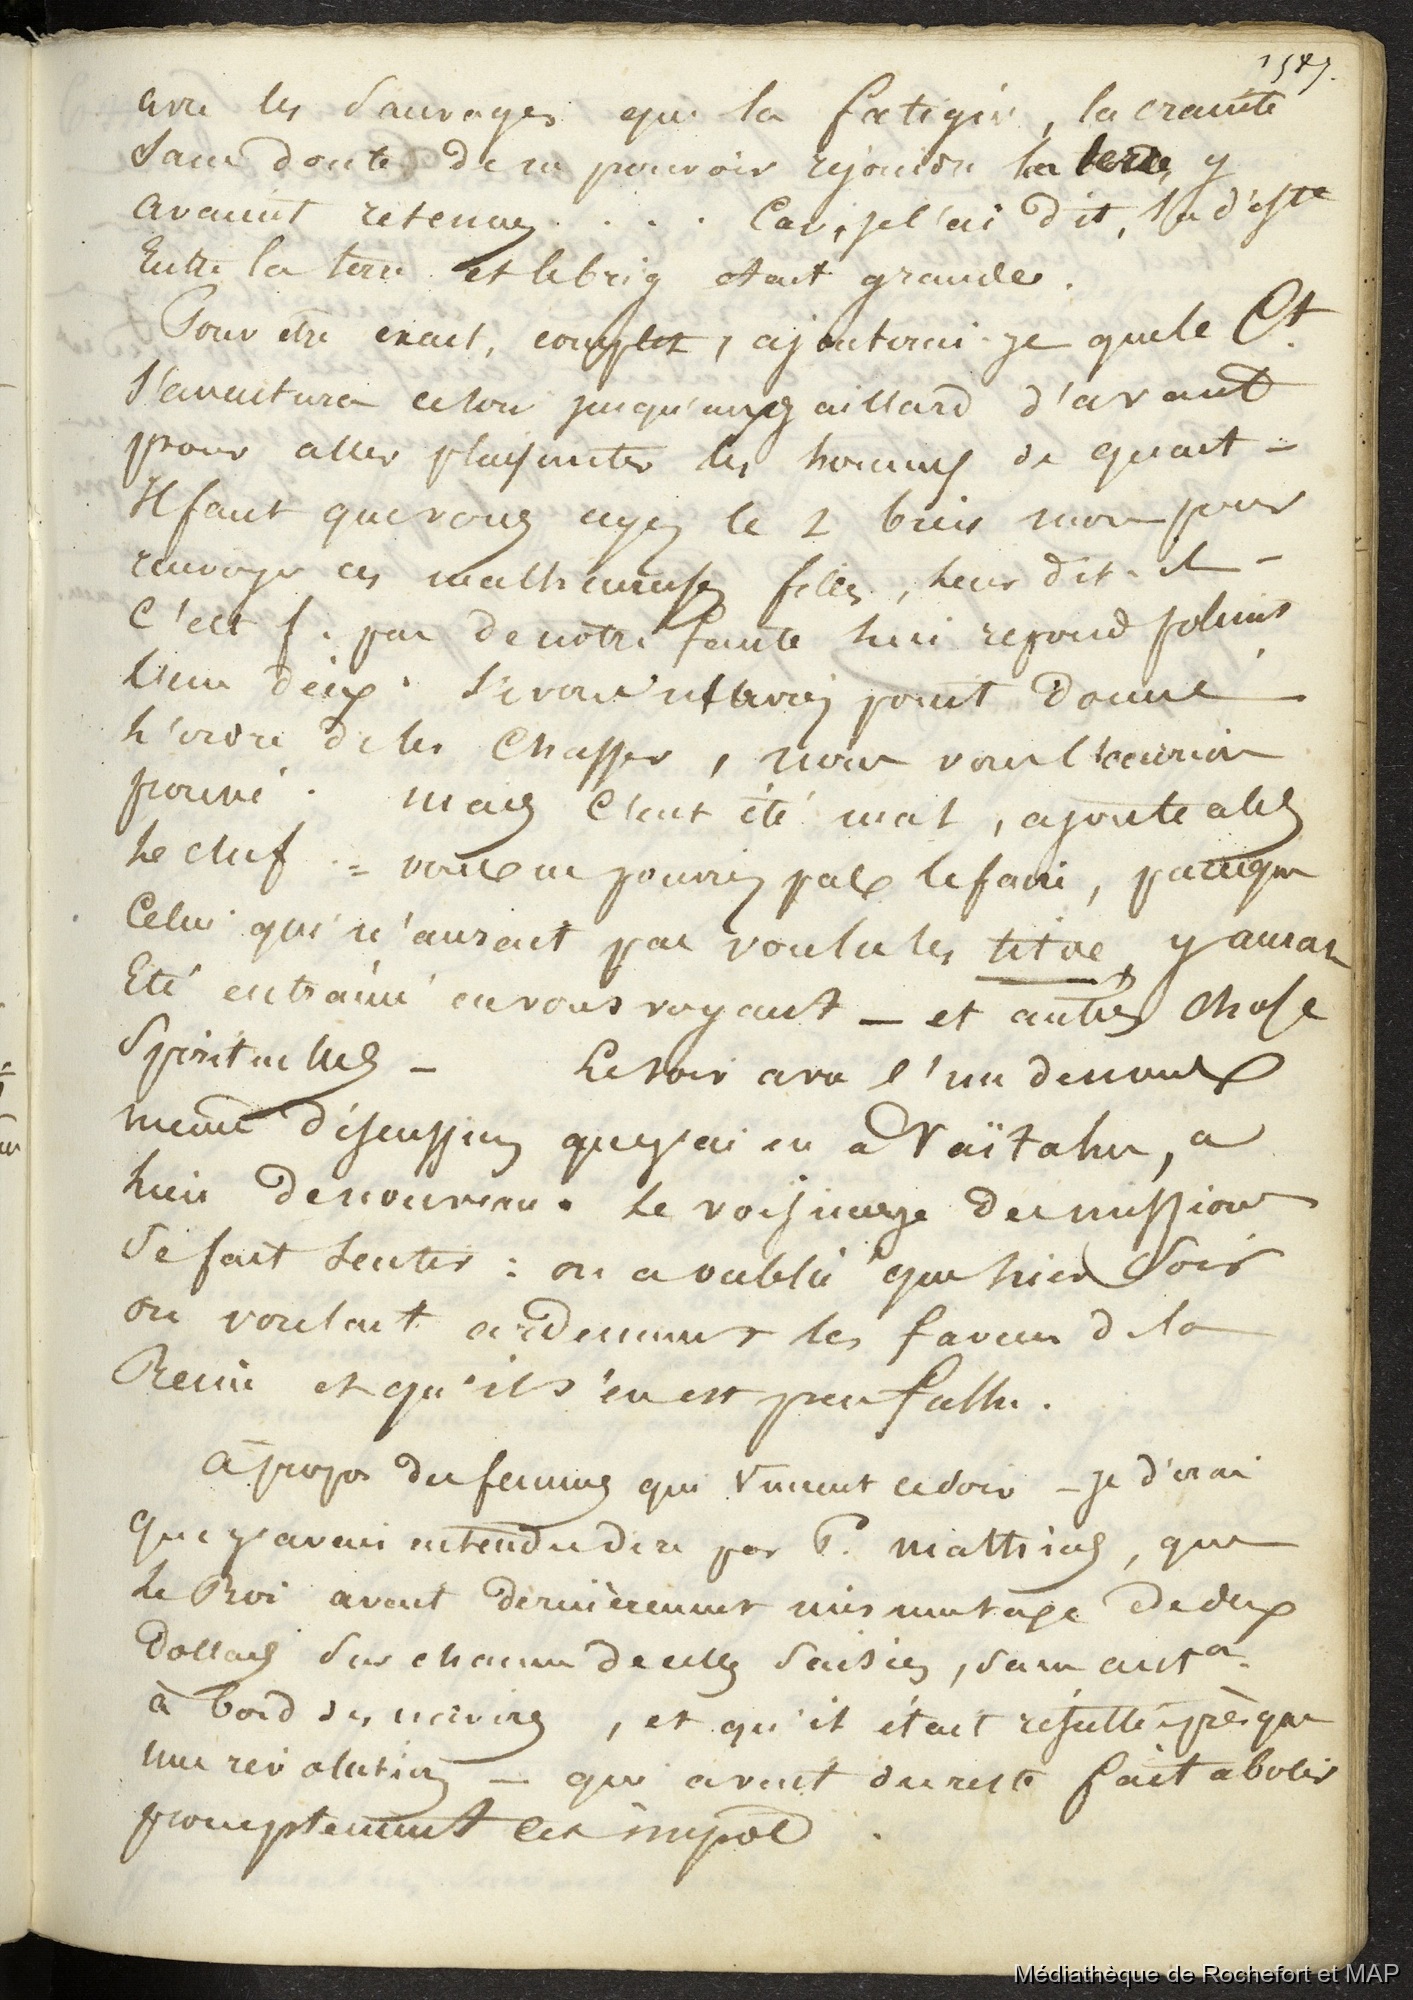 1545.
avec les Sauvages que la fatigue, la crainte
Sans doute de ne pouvoir rejoindre la terre y
avaient retenues . . . . Car, je l'ai dit, la d'iste
Entre la terre et le brig était grande.
Pour être exact, complet, ajouterai-je que le Ct.
S'aventura selon jusqu'au gaillard d'avant
pour aller plaisanter les hommes de quart -
Il faut que vous ayez le bien mou pour
renvoyer ces malheureuses filles, leur dit-il -
C'est f. pas de notre faute lui répond poliment
l'un deux. Si vous n'aviez point donné
l'ordre de les Chasser, nous vous l'aurions
prouvé. Mais C'eut été mal, ajoute alors
le chef = vous ne pouviez pas le faire, parceque
Celui qui n'aurait pas voulu les titoe, y aurait
Eté entrainé en vous voyant — et autres chose
Spirituelles — Le soir avec l'un de nous
même discussion que j'ai eu à Vaïtahu, a
lieu de nouveau. Le voisinage des missions
Se fait Sentir : on a oublié que hier Soir
on voulait ardemment les faveurs de la
Reine et qu'il s'en est peu fallu.
à propos des femmes qui vinrent ce soir - je dirai
que j'avais entendu dire par P. Mathias, que
le Roi avait dernièrement mis une taxe de deux
Dollars Sur chacune de celles Saisies, sans auton
à bord des navires, et qu'il était résulté presque
une révolution — qui avait du reste fait abolir
promptement cet impôt.
Médiathèque de Rochefort et MAP